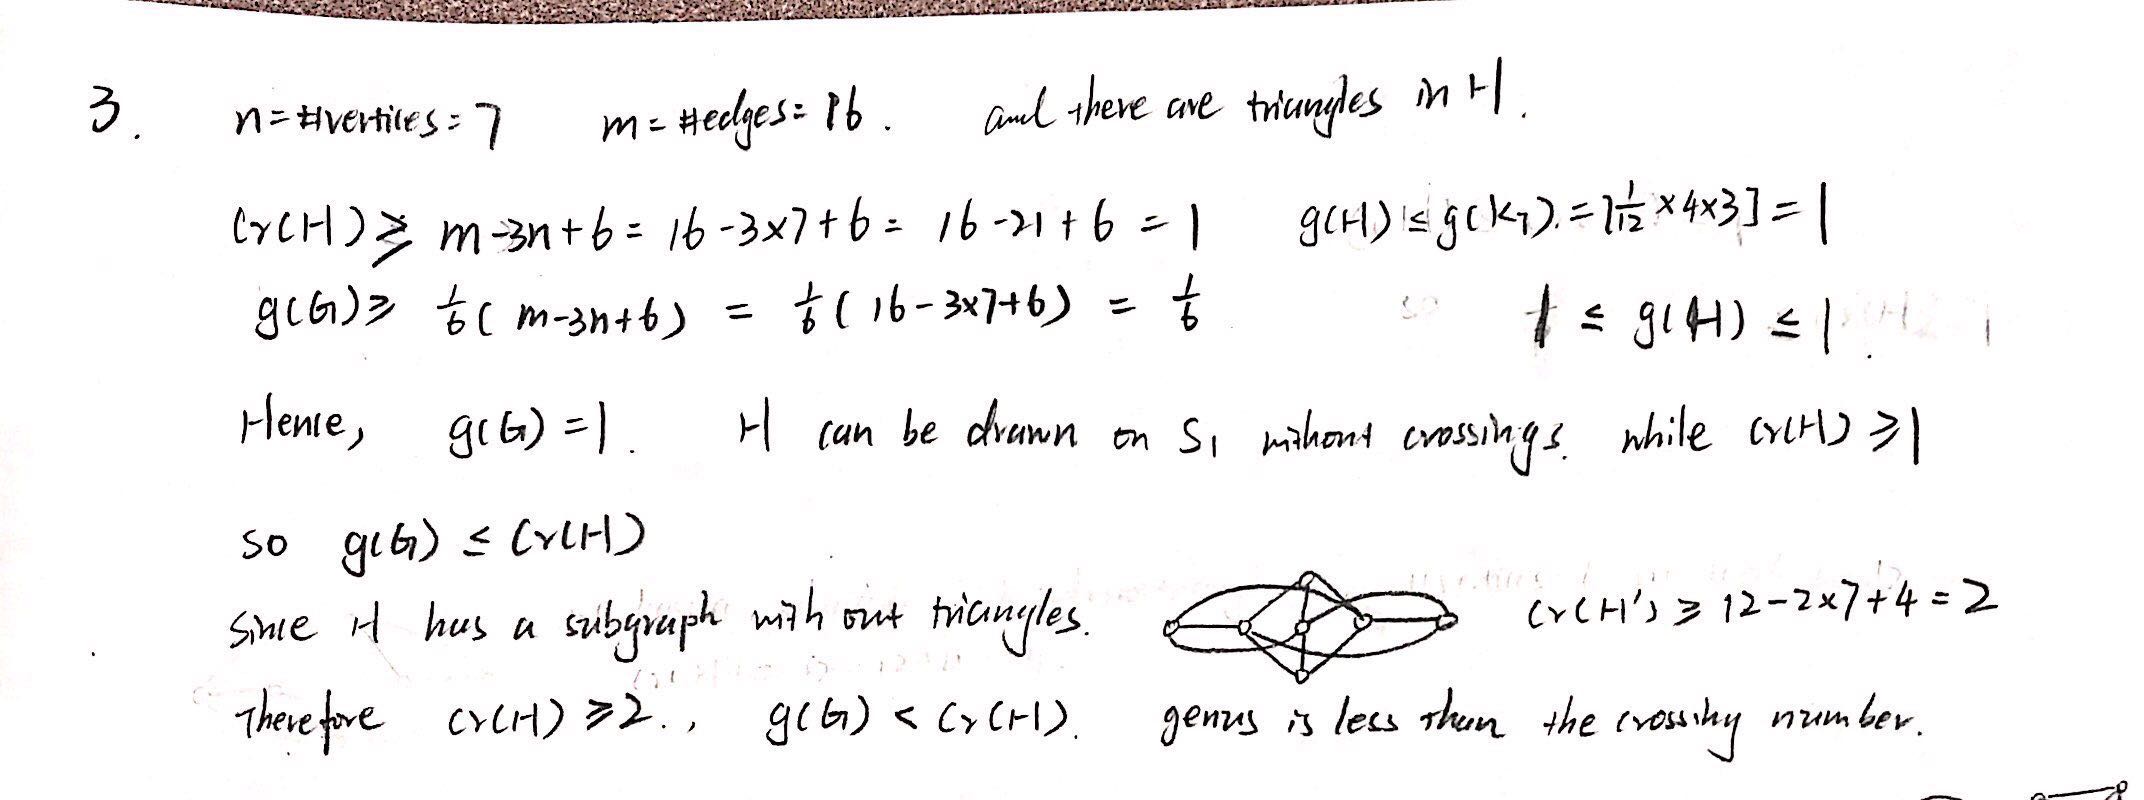 3. n=#vertices=7 m=#edges=16. and there are triangles in H.
Cr(H) ≥ m-3n+6 = 16-3×7+6 = 16-21+6 = 1 g(H) ≤ g(K7). = ⌈1/12 ×4×3⌉ = 1
g(G) ≥ 1/6 ( m-3n+6) = 1/6 ( 16-3×7+6) = 1/6 1 ≤ g(H) ≤ 1.
Hence, g(G) =1. H can be drawn on S1 without crossings. while cr(H) ≥1
so g(G) ≤ Cr(H)
Since H has a subgraph with out triangles. Cr(H') ≥ 12-2×7+4 = 2
Therefore cr(H) ≥2., g(G) < Cr(H). genus is less than the crossing number.